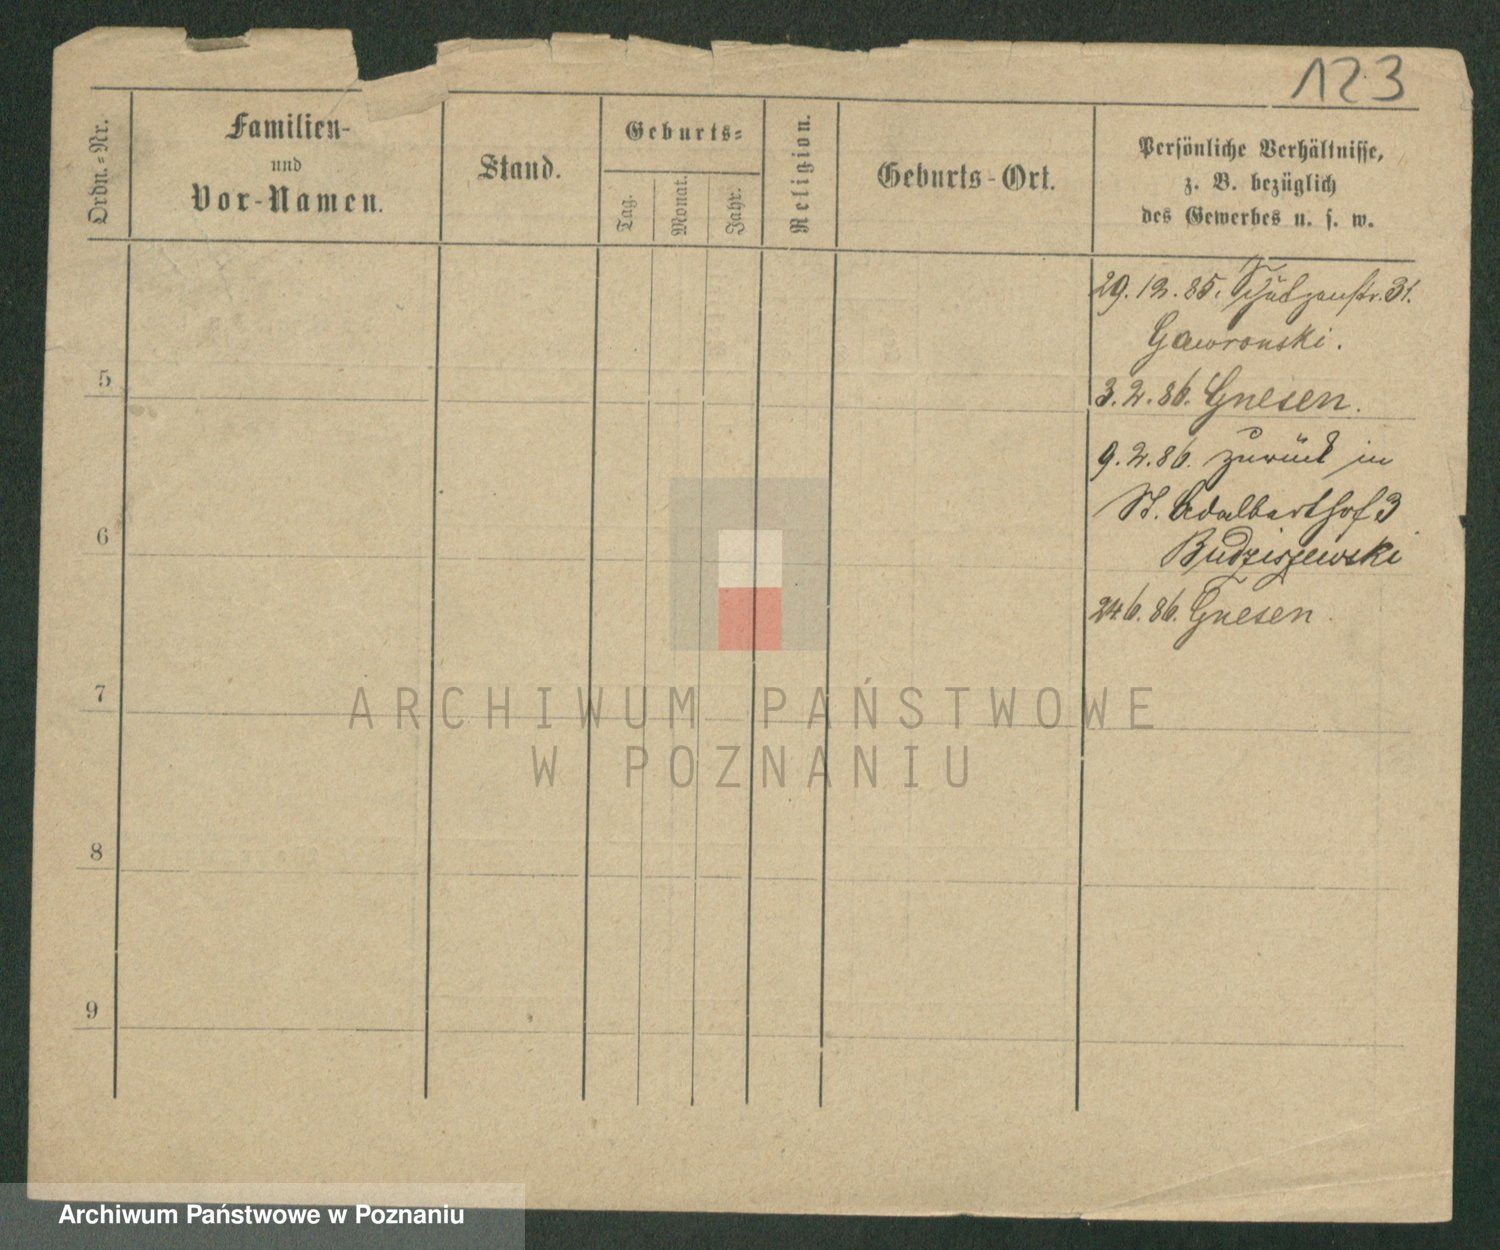 123
Ordn.-Nr.
Familien-
und
Vor-Namen.
Stand.
Geburts-
Tag.
Monat.
Jahr.
Religion.
Geburts-Ort.
Persönliche Verhältnisse,
z. B. bezüglich
des Gewerbes u. s. w.
29.12.85. Schützenstr. 31.
Gawronski.
5
3.2.86. Gnesen.
9.2.86. zurück in
St. Adalberthof 3
Budziszewski
6
24.6.86. Gnesen.
7
ARCHIWUM PAŃSTWOWE
W POZNANIU
8
9
Archiwum Państwowe w Poznaniu